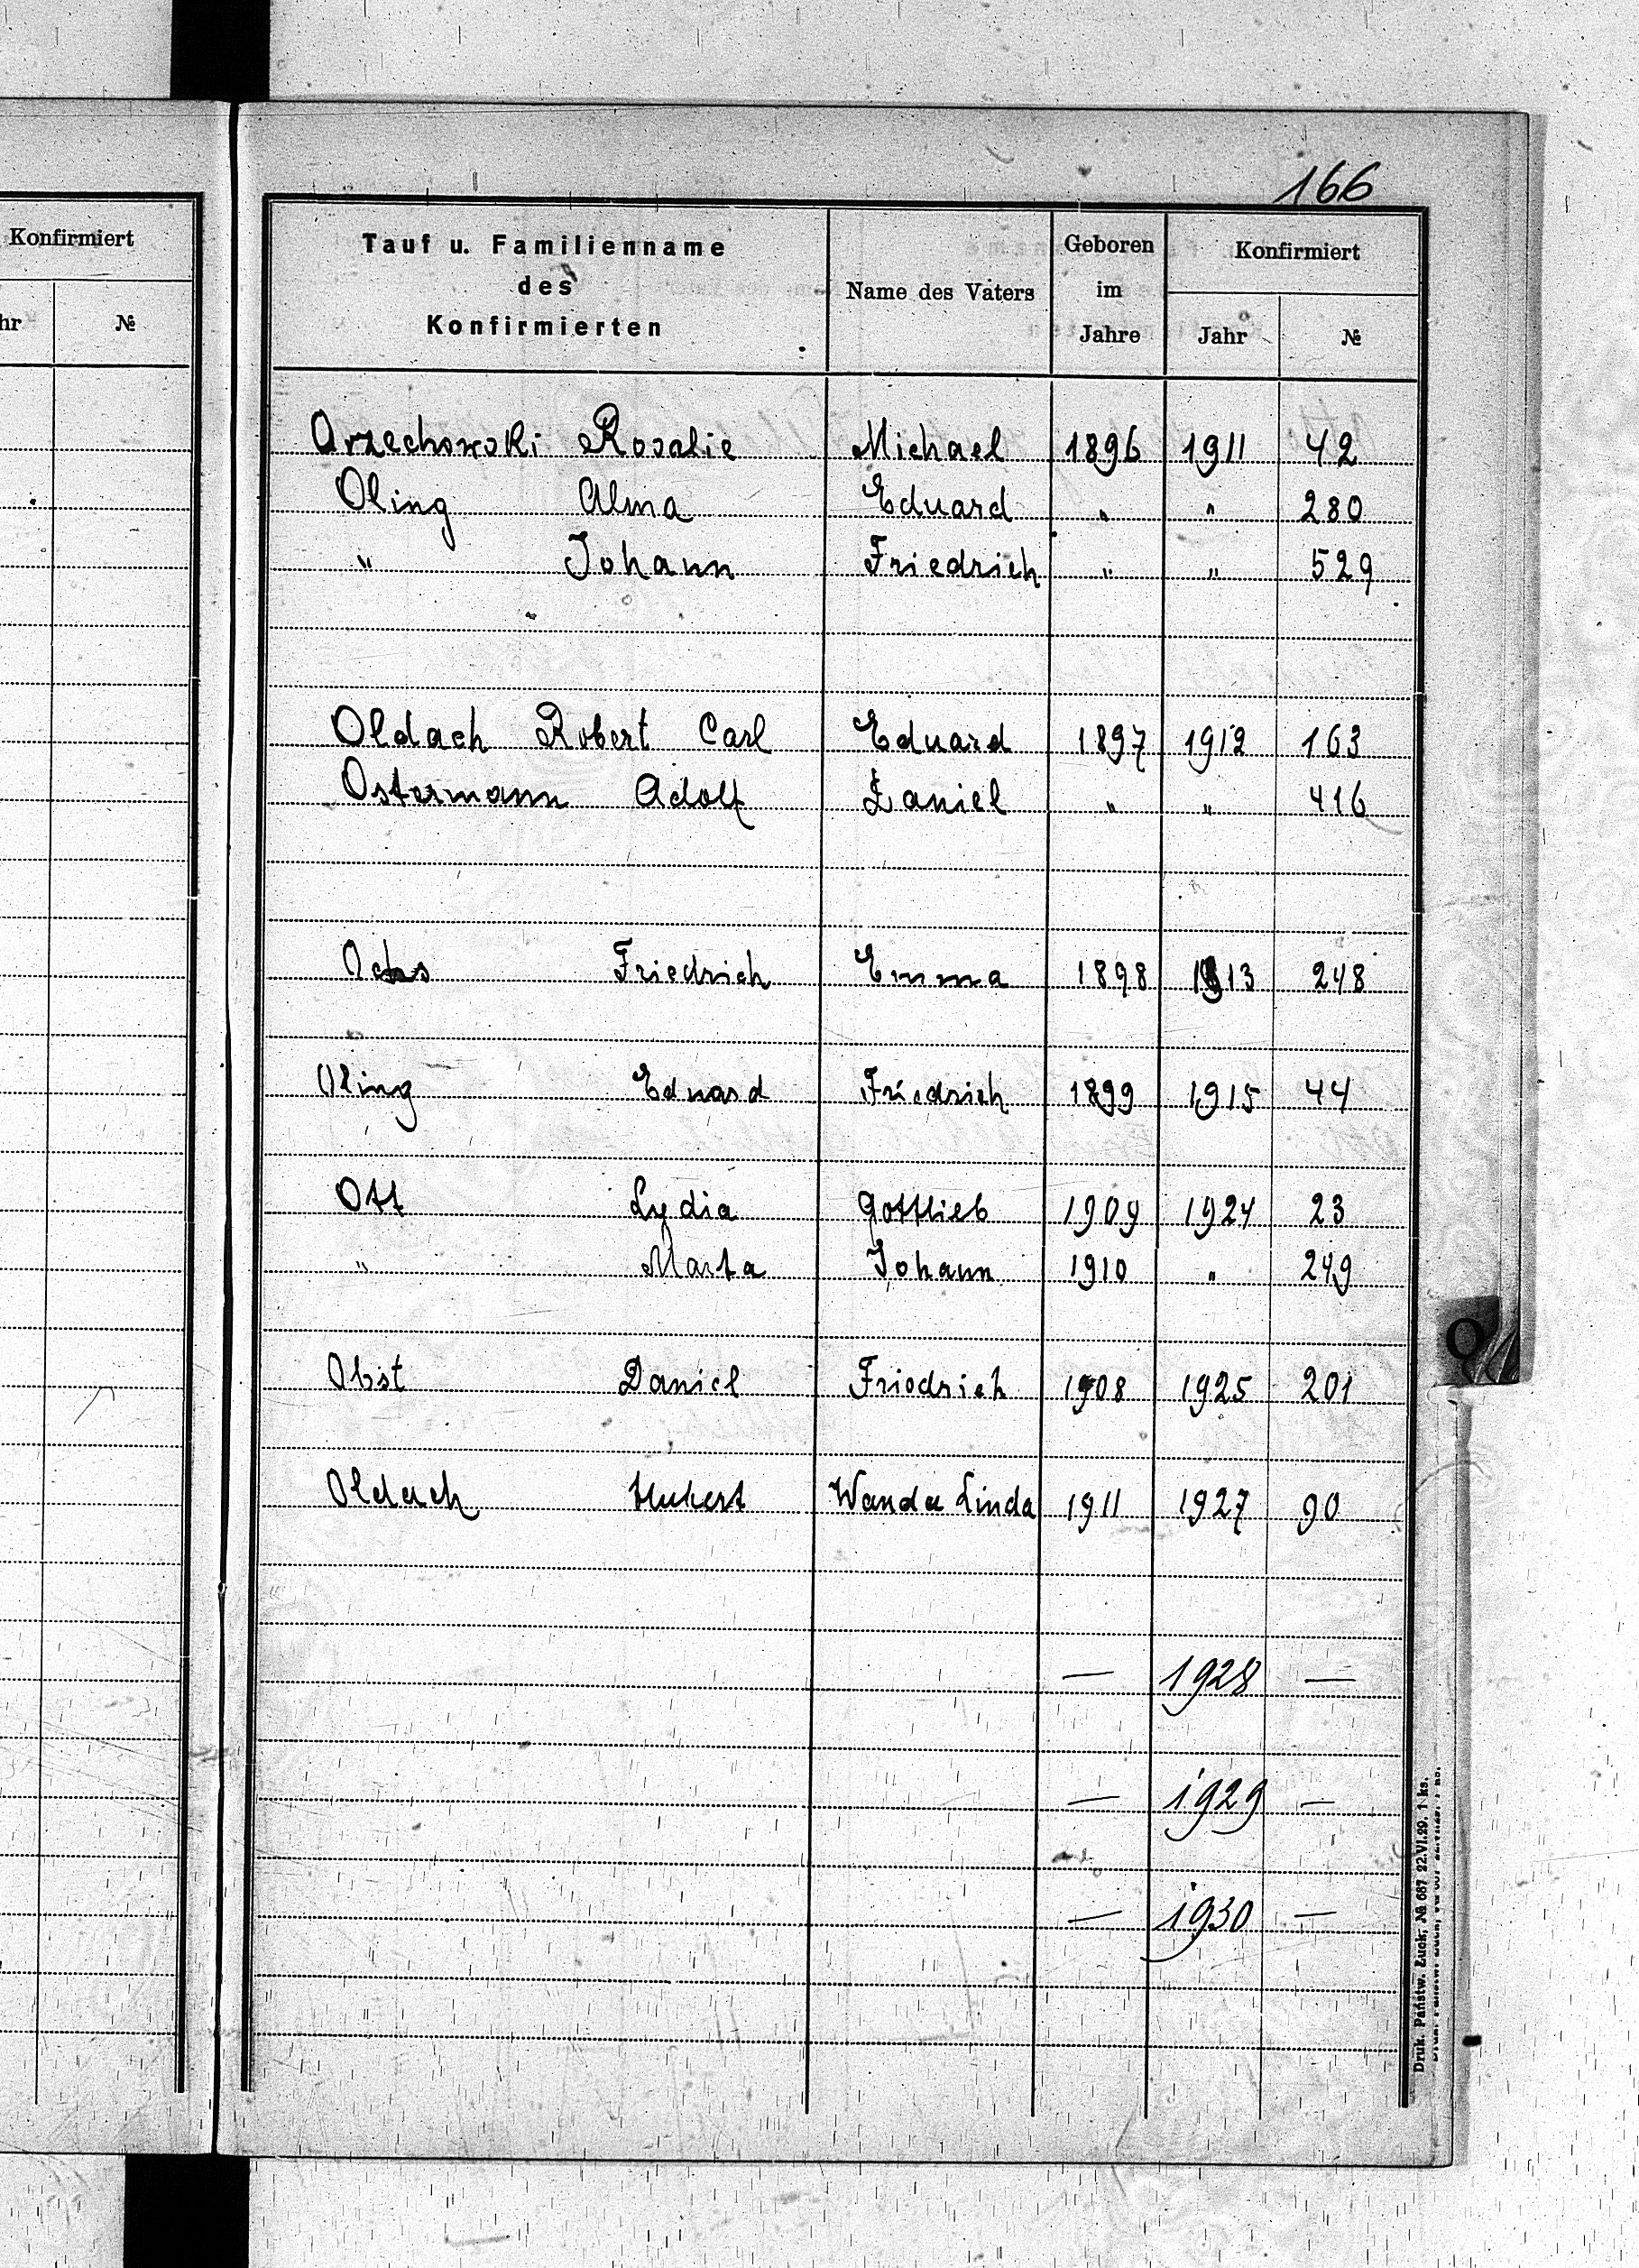 166
Konfirmiert
hr №
Tauf u. Familienname
des
Konfirmierten
Name des Vaters
Geboren
im
Jahre
Konfirmiert
Jahr №
Orzechowski Rosalie Michael 1896 1911 42
Oling Alma Eduard " " 280
" Johann Friedrich " " 529
Oldach Robert Carl Eduard 1897 1912 163
Ostermann Adolf Daniel " " 416
Ochs Friedrich Emma 1898 1913 248
Oling Eduard Friedrich 1899 1915 44
Ott Lydia Gottlieb 1909 1924 23
" Marta Johann 1910 " 249
Obst Daniel Friedrich 1908 1925 201
Oldach Hubert Wanda Linda 1911 1927 90
— 1928 —
— 1929 —
— 1930 —
O
Druk. Państw. Łuck, № 687 22.VI.29. 1 ks.